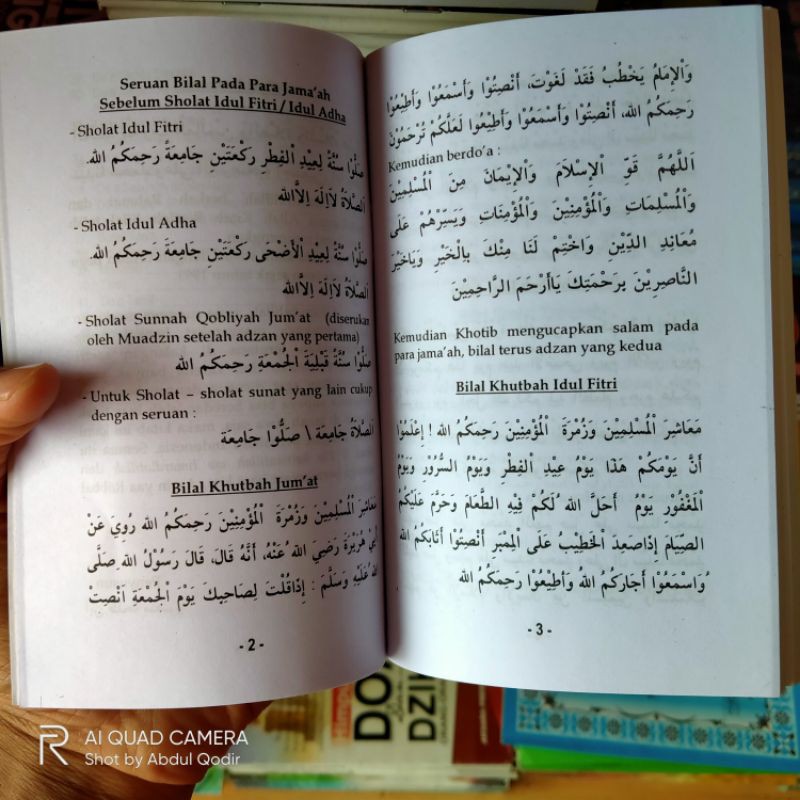 Seruan Bilal Pada Para Jama'ah
Sebelum Sholat Idul Fitri / Idul Adha
- Sholat Idul Fitri
صَلُّوْا سُنَّةً لِعِيْدِ الْفِطْرِ رَكْعَتَيْنِ جَامِعَةً رَحِمَكُمُ الله.
اَلصَّلَاةُ لَااِلَهَ اِلَّاالله
- Sholat Idul Adha
صَلُّوْا سُنَّةً لِعِيْدِ الْأَضْحَى رَكْعَتَيْنِ جَامِعَةً رَحِمَكُمُ الله.
اَلصَّلَاةُ لَااِلَهَ اِلَّاالله
- Sholat Sunnah Qobliyah Jum'at (diserukan
oleh Muadzin setelah adzan yang pertama)
صَلُّوْا سُنَّةً قَبْلِيَةَ الْجُمْعَةِ رَحِمَكُمُ الله
- Untuk Sholat – sholat sunat yang lain cukup
dengan seruan :
اَلصَّلَاةُ جَامِعَة \ صَلُّوْا جَامِعَة
Bilal Khutbah Jum'at
مَعَاشِرَ الْمُسْلِمِيْنَ وَزُمْرَةَ الْمُؤْمِنِيْنَ رَحِمَكُمُ الله رُوِيَ عَنْ
اَبِيْ هُرَيْرَةَ رَضِيَ الله عَنْهُ، أَنَّهُ قَالَ، قَالَ رَسُوْلُ الله صَلَّى
الله عَلَيْهِ وَسَلَّمَ : إِذَاقُلْتَ لِصَاحِبِكَ يَوْمَ الْجُمْعَةِ اَنْصِتْ
- 2 -
وَالْإِمَامُ يَخْطُبُ فَقَدْ لَغَوْتَ، أَنْصِتُوْا وَأَسْمَعُوْا وَأَطِيْعُوْا
رَحِمَكُمُ الله، أَنْصِتُوْا وَأَسْمَعُوْا وَأَطِيْعُوا لَعَلَّكُمْ تُرْحَمُوْنَ
Kemudian berdo'a :
اَللَّهُمَّ قَوِّ الْإِسْلَامَ وَالْإِيْمَانَ مِنَ الْمُسْلِمِيْنَ
وَالْمُسْلِمَاتِ وَالْمُؤْمِنِيْنَ وَالْمُؤْمِنَاتِ وَيَسِّرْهُمْ عَلَى
مُعَانِدِ الدِّيْنِ وَاخْتِمْ لَنَا مِنْكَ بِالْخَيْرِ وَيَاخَيْرَ
النَّاصِرِيْنَ بِرَحْمَتِكَ يَاأَرْحَمَ الرَّاحِمِيْنَ
Kemudian Khotib mengucapkan salam pada
para jama'ah, bilal terus adzan yang kedua
Bilal Khutbah Idul Fitri
مَعَاشِيْرَ الْمُسْلِمِيْنَ وَزُمْرَةَ الْمُؤْمِنِيْنَ رَحِمَكُمُ الله ! إِعْلَمُوْا
أَنَّ يَوْمَكُمْ هَذَا يَوْمُ عِيْدِ الْفِطْرِ وَيَوْمُ السُّرُوْرِ وَيَوْمُ
الْمَغْفُوْرِ يَوْمُ أَحَلَّ الله لَكُمْ فِيْهِ الطَّعَامَ وَحَرَّمَ عَلَيْكُمْ
الصِّيَامَ إِذَاصَعِدَ الْخَطِيْبُ عَلَى الْمِمْبَرِ أَنْصِتُوْا أَثَابَكُمُ الله
وَاسْمَعُوْا أَجَارَكُمُ اللهُ وَأَطِيْعُوْا رَحِمَكُمُ الله
- 3 -
AI QUAD CAMERA
Shot by Abdul Qodir